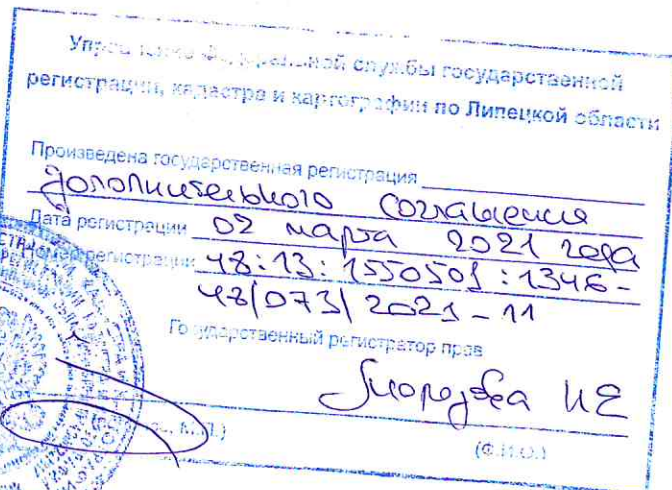 Управление Федеральной службы государственной
регистрации, кадастра и картографии по Липецкой области
Произведена государственная регистрация
дополнительного соглашения
Дата регистрации 02 марта 2021 года
Номер регистрации 48:13:1550501:1346-
48/073/2021-11
Государственный регистратор прав
И Е
(подпись, М.П.)
(Ф.И.О.)